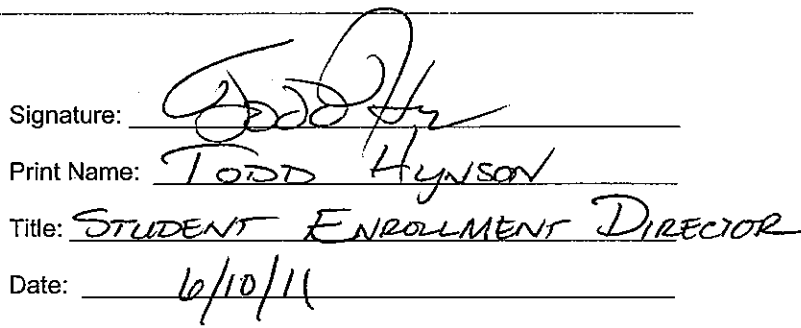 Signature: Todd Hy
Print Name: TODD HYNSON
Title: STUDENT ENROLLMENT DIRECTOR
Date: 6/10/11